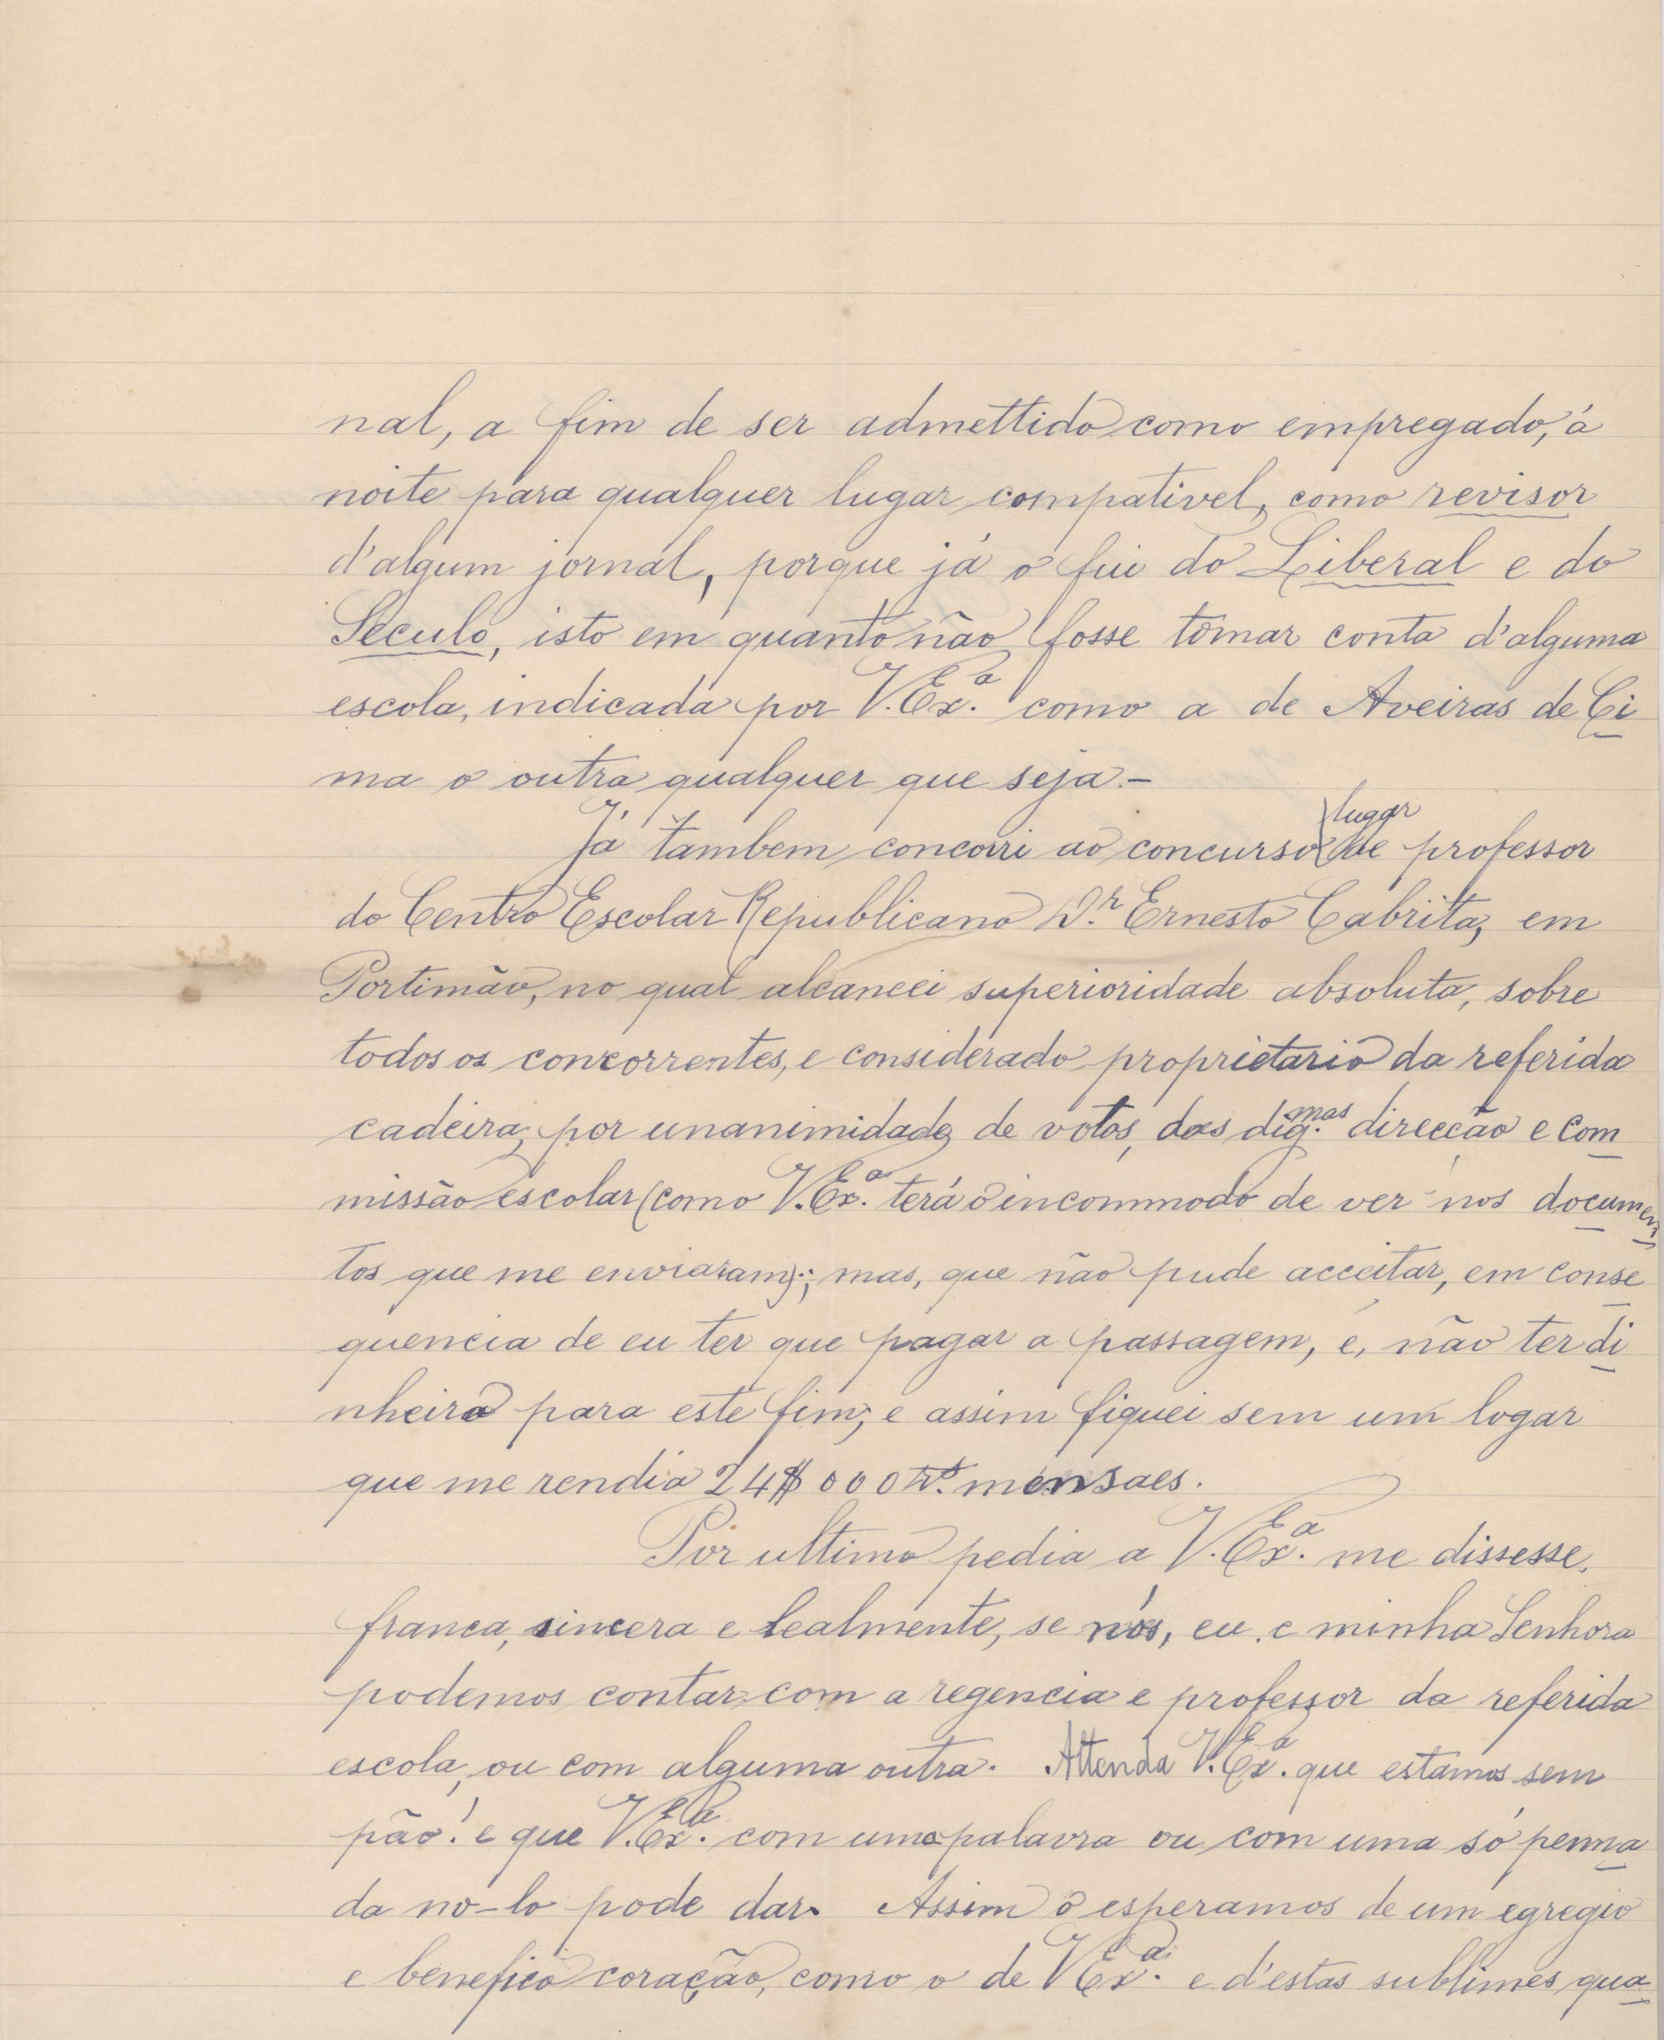 nal, a fim de ser admettido como empregado, á
noite para qualquer lugar compativel, como revisor
d'algum jornal, porque já o fui do Liberal e do
Seculo, isto em quanto não fosse tomar conta d'alguma
escola, indicada por V. Ex.ª como a de Aveiras de Ci
ma o outra qualquer que seja.-
Já tambem concorri ao concurso lugar de professor
do Centro Escolar Republicano D.r Ernesto Cabrita, em
Portimão, no qual alcancei superioridade absoluta, sobre
todos os concorrentes, e considerado proprietario da referida
cadeira, por unanimidade de votos, das dig.mas direcção e com
missão escolar (como V. Ex.ª terá o incommodo de ver nos documen
tos que me enviaram); mas, que não pude acceitar, em conse
quencia de eu ter que pagar a passagem, e, não ter di
nheiro para este fim; e assim fiquei sem um logar
que me rendia 24$000 rs. mensaes.
Por ultimo pedia a V. Ex.ª me dissesse,
franca, sincera e lealmente, se nós, eu e minha Senhora
podemos contar com a regencia e professor da referida
escola, ou com alguma outra. Attenda V. Ex.ª que estamos sem
pão! e que V. Ex.ª com uma palavra ou com uma só penna
da no-lo pode dar. Assim o esperamos de um egregio
e benefico coração, como o de V Ex.ª e d'estas sublimes qua